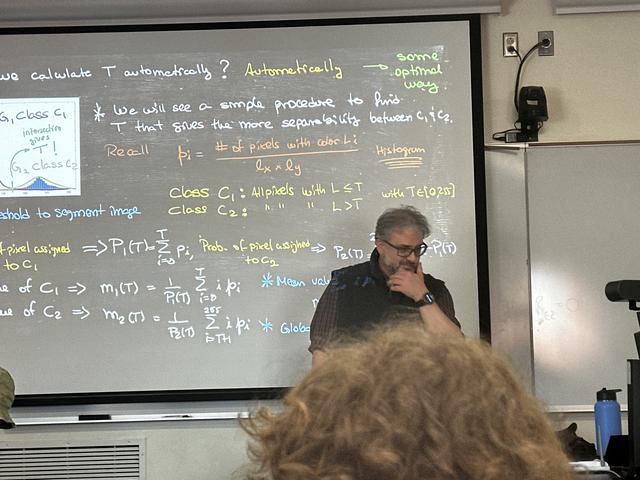 we calculate T automatically? Automatically → some
optimal
way
G, Class C1
intersection
gives
T!
G2 Class C2
* We will see a simple procedure to find
T that gives the more separability between C1 & C2.
Recall pi = # of pixels with color Li / lx × ly Histogram
Class C1: All pixels with L ≤ T with T∈[0,255]
Class C2: " " " L > T
eshold to segment image
of pixel assigned to C1 ⇒ P1(T) = Σ_{i=0}^{T} pi, Prob. of pixel assigned to C2 ⇒ P2(T)
P1(T)
ue of C1 ⇒ m1(T) = 1/P1(T) Σ_{i=0}^{T} i pi * Mean val
ue of C2 ⇒ m2(T) = 1/P2(T) Σ_{i=T+1}^{255} i pi * Globa